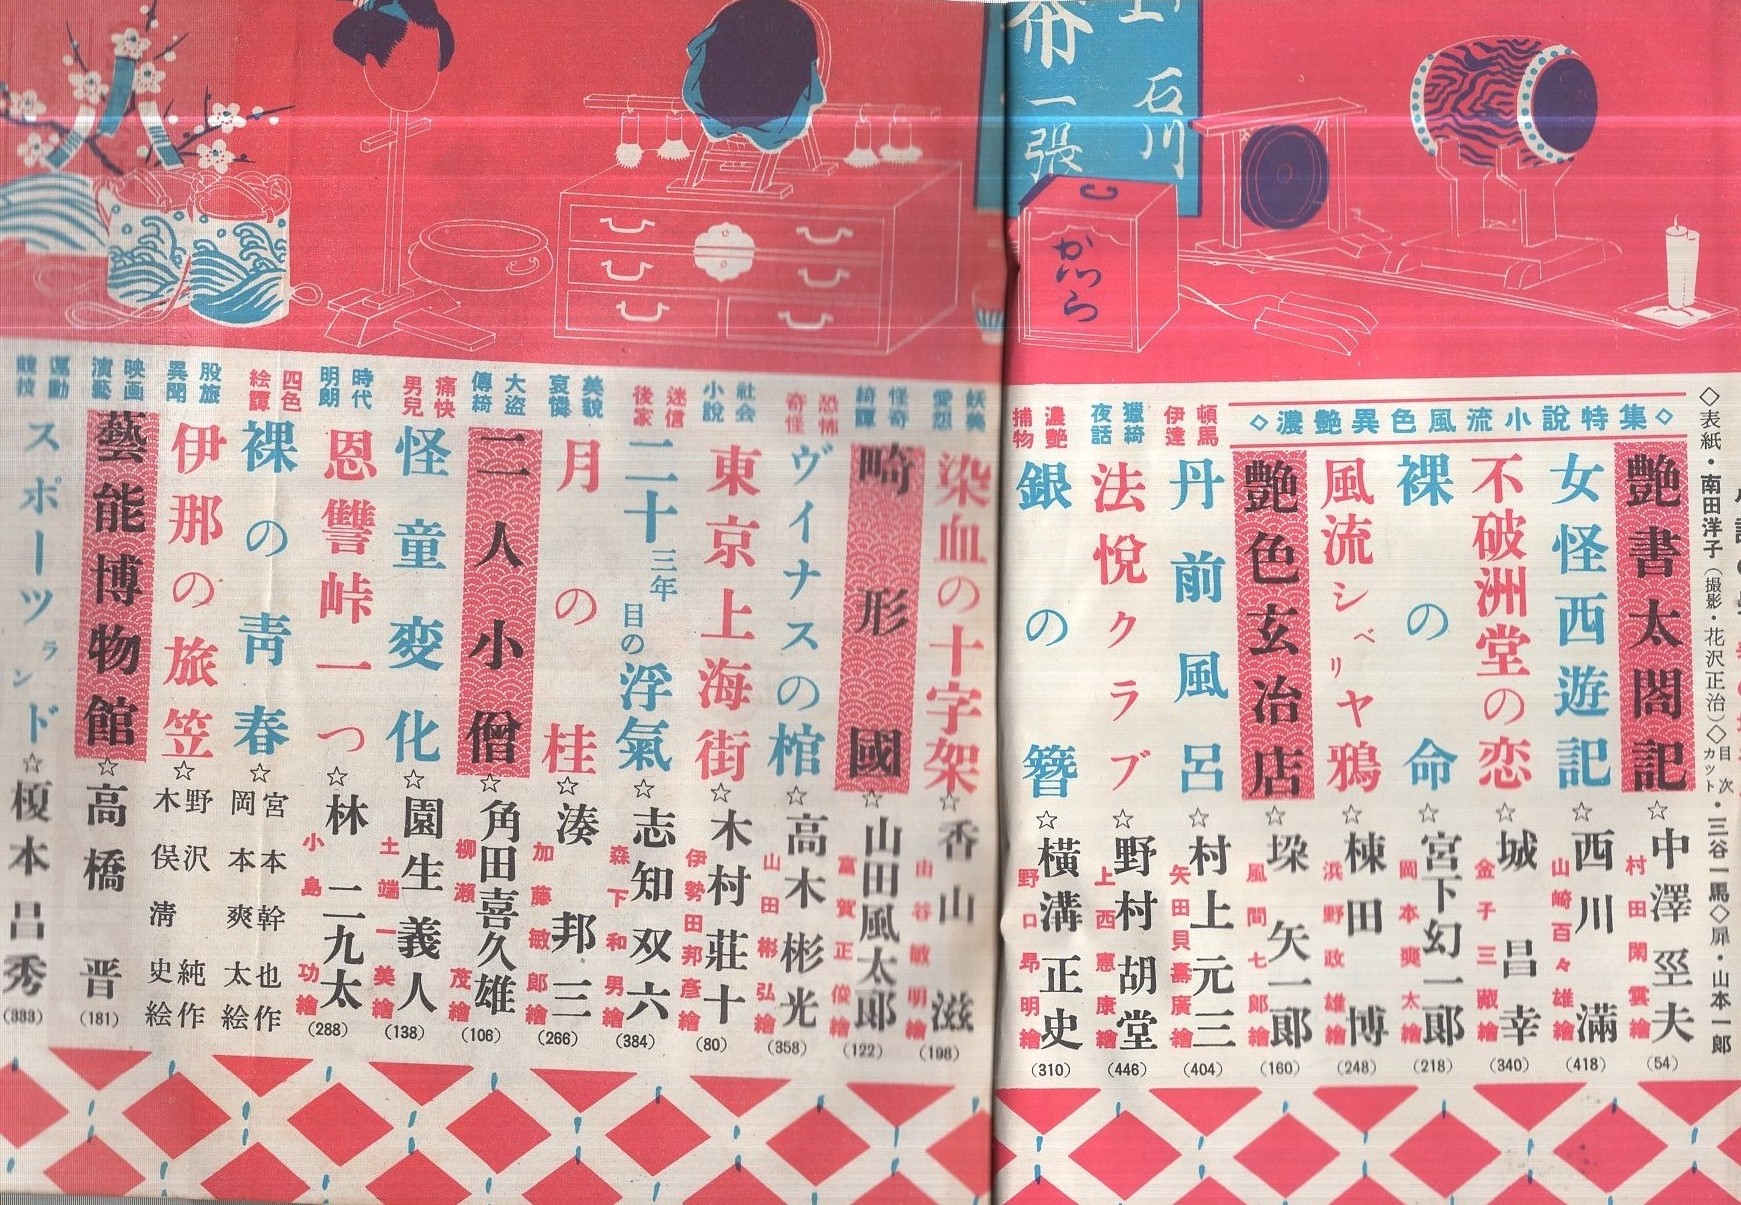 石川
一張
かつら
◇表紙・南田洋子（撮影・花沢正治）◇目次カット・三谷一馬◇扉・山本一郎
◇濃艶異色風流小說特集◇
艶書太閤記☆中澤巠夫
村田閑雲繪
(54)
女怪西遊記☆西川滿
山崎百々雄繪
(418)
不破洲堂の恋☆城昌幸
金子三蔵繪
(340)
裸の命☆宮下幻一郎
岡本爽太繪
(218)
風流シベリヤ鴉☆棟田博
浜野政雄繪
(248)
艶色玄冶店☆梁矢一郎
風間七郎繪
(160)
頓馬伊達
丹前風呂☆村上元三
矢田貝壽廣繪
(404)
獵綺夜話
法悅クラブ☆野村胡堂
上西憲康繪
(446)
濃艶捕物
銀の簪☆橫溝正史
野口昂明繪
(310)
妖美愛怨
染血の十字架☆香山滋
由谷敏明繪
(198)
怪奇綺譚
畸形國☆山田風太郎
富賀正俊繪
(122)
恐怖奇怪
ヴイナスの棺☆高木彬光
山田彬弘繪
(358)
社会小說
東京上海街☆木村莊十
伊勢田邦彥繪
(80)
迷信後家
二十三年目の浮氣☆志知双六
森下和男繪
(384)
美貌哀憐
月の桂☆湊邦三
加藤敏郎繪
(266)
大盗傳綺
二人小僧☆角田喜久雄
柳瀬茂繪
(106)
痛快男兒
怪童変化☆園生義人
土端一美繪
(138)
時代明朗
恩讐峠一つ☆林二九太
小島功繪
(288)
四色絵譚
裸の靑春☆宮本幹也作
岡本爽太絵
股旅異聞
伊那の旅笠☆野沢純作
木俣淸史絵
映画演藝
藝能博物館☆高橋晋
(181)
運動競技
スポーツランド☆榎本昌秀
(333)